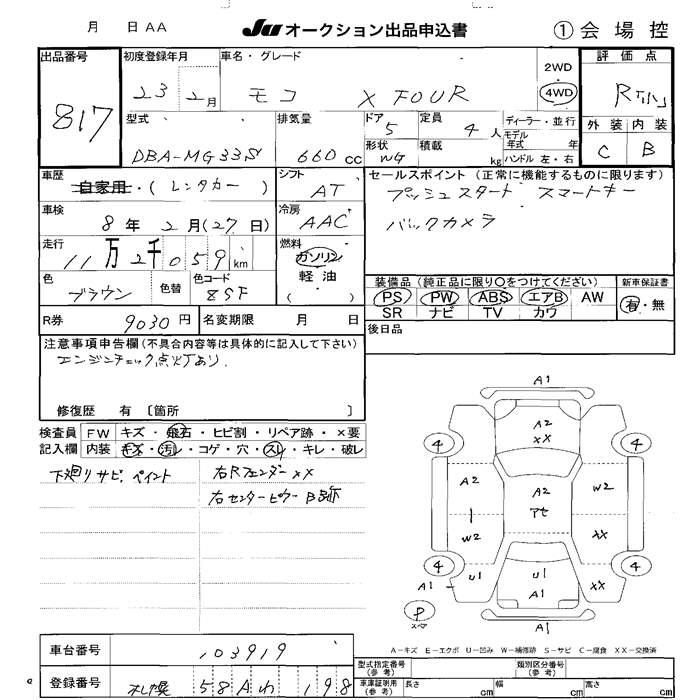 月 日 AA JU オークション出品申込書 ① 会場控
出品番号 初度登録年月 車名・グレード 2WD 評価点
817 23 2月 モコ X FOUR 4WD R
型式 排気量 ドア 定員 ディーラー・並行 外装 内装
DBA-MG33S 660 cc 5 4人 モデル年式 年 C B
形状 WG 積載 kg ハンドル 左・右
車歴 自家用・(レンタカー) シフト AT セールスポイント (正常に機能するものに限ります)
プッシュスタート スマートキー
車検 8年 2月(27日) 冷房 AAC バックカメラ
走行 11万2千059km 燃料 ガソリン
軽油
( )
色 ブラウン 色替 色コード ZSF
装備品 (純正品に限り〇をつけてください) 新車保証書
PS PW ABS エアB AW 有・無
SR ナビ TV カワ
R券 9030円 名変期限 月 日
後日品
注意事項申告欄(不具合内容等は具体的に記入して下さい)
エンジンチェック点灯あり
修復歴 有 〔箇所 〕
検査員 FW キズ・飛石・ヒビ割・リペア跡・×要
記入欄 内装 キズ・汚レ・コゲ・穴・スレ・キレ・破レ
下廻りサビ、ペイント 右Rフェンダー XX
右センターピラー B跡
A1
4 A2 XX 4
A2 A2 W2
アセ
W2 XX
4 U1 U1 XX 4
A1 A1
P スペア A1
A－キズ E－エクボ U－凹み W－補修跡 S－サビ C－腐食 XX－交換済
車台番号 103919
型式指定番号(参考) 類別区分番号(参考)
登録番号 札幌 58A わ 198
車庫証明用(参考) 長さ cm 幅 cm 高さ cm